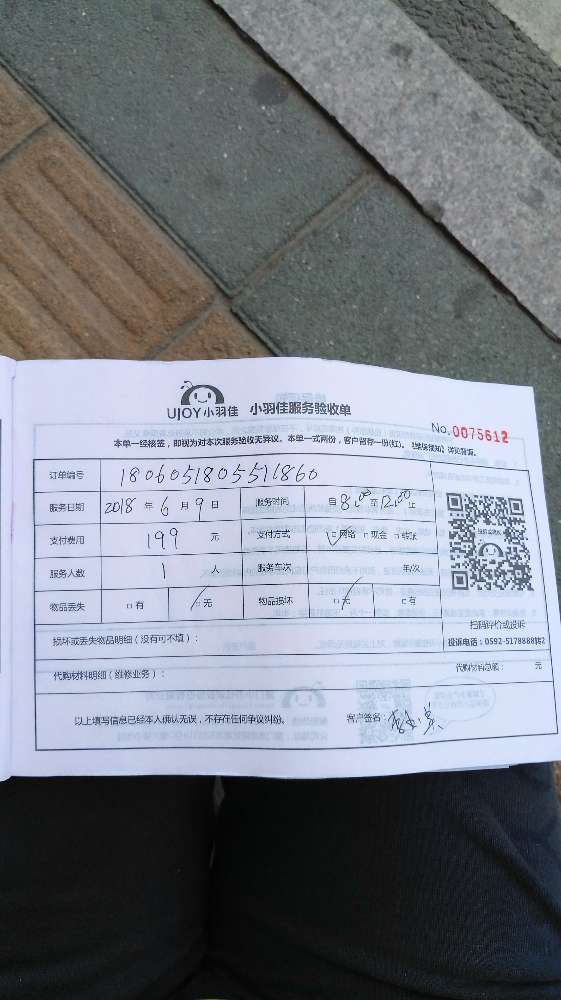 UJOY小羽佳 小羽佳服务验收单
No.0075612
本单一经接签，即视为对本次服务验收无异议。本单一式两份，客户留存一份(红)。
订单编号 1806051805511860
服务日期 2018 年 6 月 9 日 服务时间 自 8:00 至 12:00 止
支付费用 199 元 支付方式 ☑网络 □现金 □转账
服务人数 1 人 服务车次 车/次
物品丢失 □有 ☑无 物品损坏 ☑无 □有
扫码评价或投诉
损坏或丢失物品明细（没有可不填）：
投诉电话：0592-5178888转2
代购材料明细（维修业务）： 代购材料总额： 元
以上填写信息已经本人确认无误，不存在任何争议纠纷。 客户签名：